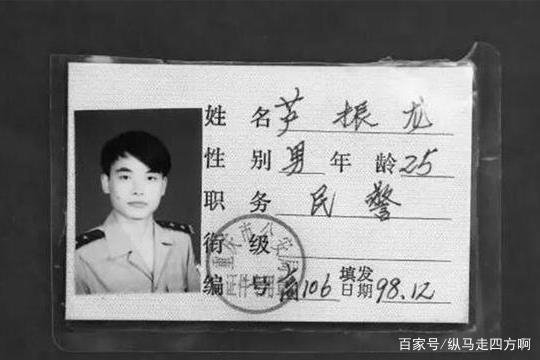 姓 名 芦振龙
性 别 男 年 龄 25
职 务 民警
衔 级
重庆市公安
编 号 106 填发日期 98.12
百家号/纵马走四方啊